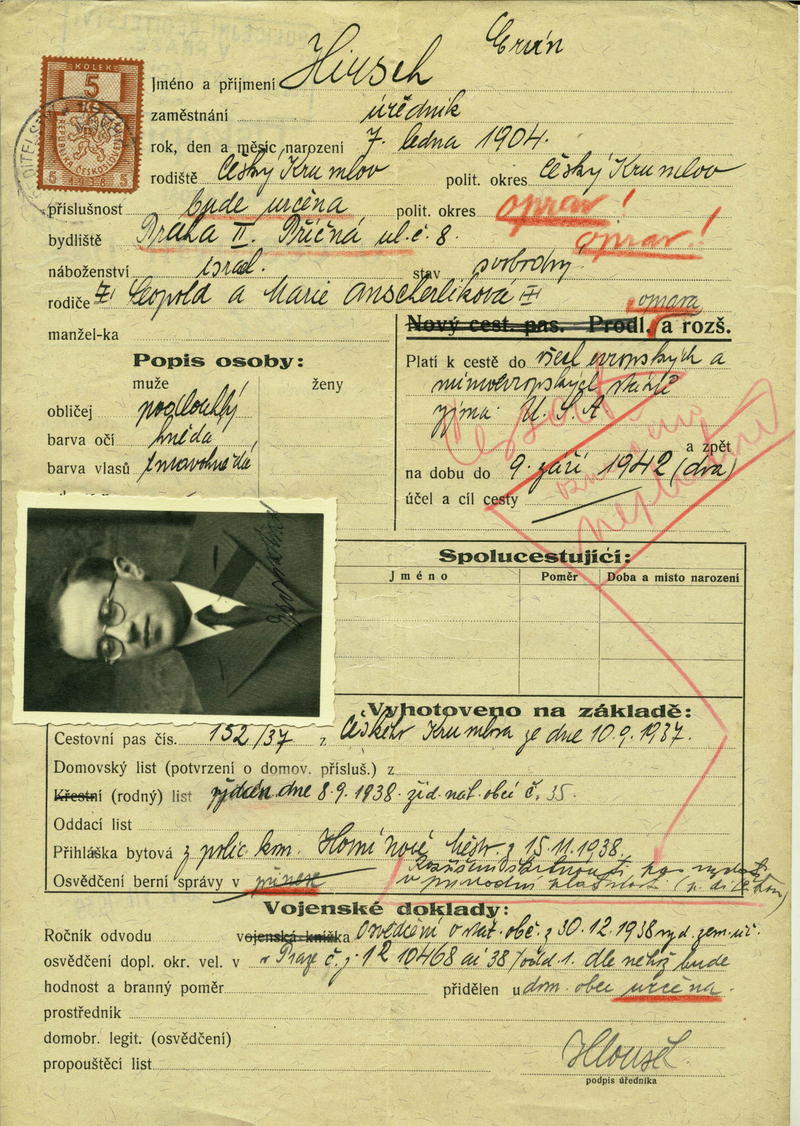 Ervín
KOLEK
5
Kč
REPUBLIKA ČESKOSLOVENSKÁ
5 1938 5
Jméno a příjmení Hirsch
zaměstnání úředník
rok, den a měsíc narození 7. ledna 1904.
rodiště Český Krumlov polit. okres Český Krumlov
příslušnost bude určena polit. okres oprav!
bydliště Praha II. Příčná ul. č. 8. oprav!
náboženství israel. stav svobodný
rodiče Leopold a Marie Anscherliková
oprava
manžel-ka
Nový cest. pas. Prodl. a rozš.
Popis osoby:
muže ženy
obličej podlouhlý
barva očí hnědá
barva vlasů tmavohnědá
Platí k cestě do všech evropských a
mimoevropských států
vyjma U.S.A.
a zpět
na dobu do 9. září 1942 (dva)
účel a cíl cesty
neplatný
Spolucestující:
Jméno Poměr Doba a místo narození
Vyhotoveno na základě:
Cestovní pas čís. 152/37 z Českého Krumlova ze dne 10.9.1937.
Domovský list (potvrzení o domov. přísluš.) z
Křestní (rodný) list dne 8.9.1938 žid. náb. obcí č. 35
Oddací list
Přihláška bytová z polic. kom. Horní Nové Město z 15.11.1938
Osvědčení berní správy v
Vojenské doklady:
Ročník odvodu vojenská knížka Osvědčení o stát. obč. z 30.12.1938 vyd. zem. úř.
osvědčení dopl. okr. vel. v v Praze č. j. 12 10468 ai 38/odd. 1. dle něhož bude
hodnost a branný poměr přidělen u dom. obec určena.
prostředník
domobr. legit. (osvědčení)
propouštěcí list
podpis úředníka